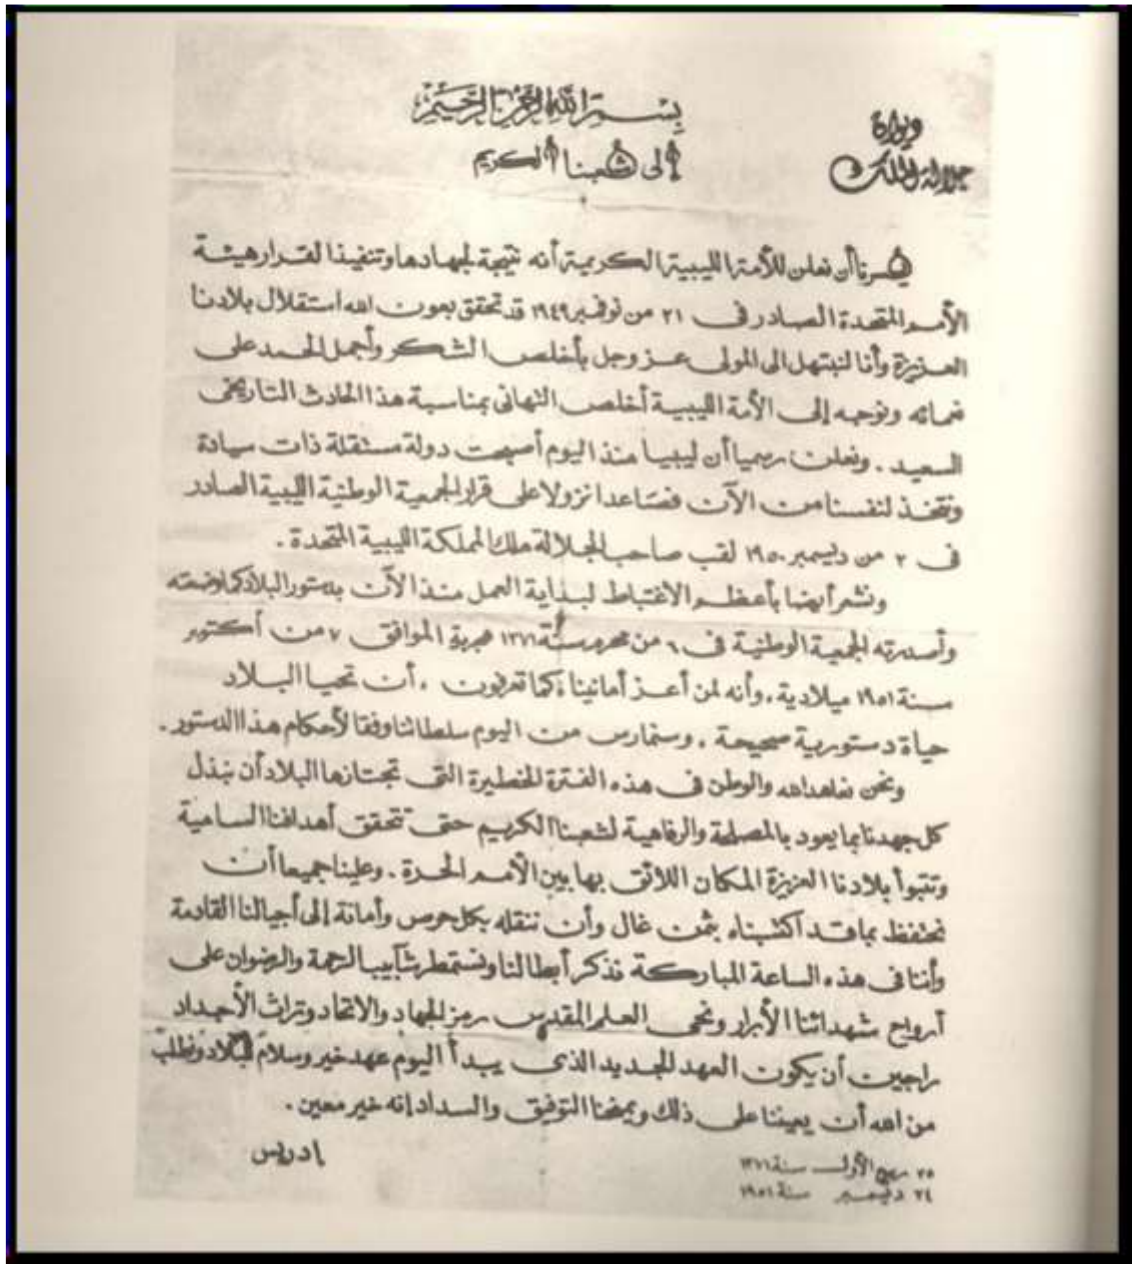 بسم الله الرحمن الرحيم
ديوان
جلالة الملك
إلى شعبنا الكريم
يسرنا أن نعلن للأمة الليبية الكريمة أنه نتيجة لجهادها وتنفيذا لقرار هيئة
الأمم المتحدة الصادر فى ٢١ من نوفمبر ١٩٤٩ قد تحقق بعون الله استقلال بلادنا
العزيزة وأنا لنبتهل الى المولى عز وجل بأخلص الشكر وأجمل الحمد على
نعمائه ونوجه إلى الأمة الليبية أخلص التهانى بمناسبة هذا الحادث التاريخى
السعيد . ونعلن رسميا أن ليبيا منذ اليوم أصبحت دولة مستقلة ذات سيادة
ونتخذ لنفسنا من الآن فصاعدا نزولا على قرار الجمعية الوطنية الليبية الصادر
فى ٢ من ديسمبر ١٩٥٠ لقب صاحب الجلالة ملك المملكة الليبية المتحدة .
ونشعر أيضا بأعظم الاغتباط لبداية العمل منذ الآن بدستور البلاد كما وضعته
وأصدرته الجمعية الوطنية فى ٦ من محرم سنة ١٣٧١ هجرية الموافق ٧ من أكتوبر
سنة ١٩٥١ ميلادية . وأنه لمن أعز أمانينا كما تعرفون ، أن تحيا البلاد
حياة دستورية صحيحة . وسنمارس من اليوم سلطاتنا وفقا لأحكام هذا الدستور .
ونحن نعاهد الله والوطن فى هذه الفترة الخطيرة التى تجتازها البلاد أن نبذل
كل جهدنا بما يعود بالمصلحة والرفاهية لشعبنا الكريم حتى تتحقق أهدافنا السامية
وتتبوأ بلادنا العزيزة المكان اللائق بها بين الأمم الحرة . وعلينا جميعا أن
نحتفظ بما قد اكتسبناه بثمن غال وأن ننقله بكل حرص وأمانة إلى أجيالنا القادمة
وأننا فى هذه الساعة المباركة نذكر أبطالنا ونستمطر شآبيب الرحمة والرضوان على
أرواح شهدائنا الأبرار ونحى العلم المقدس رمز الجهاد والاتحاد وتراث الأجداد
راجين أن يكون العهد الجديد الذى يبدأ اليوم عهد خير وسلام للبلاد ونطلب
من الله أن يعيننا على ذلك ويمنحنا التوفيق والسداد إنه خير معين .
ادريس
٢٥ ربيع الأول سنة ١٣٧١
٢٤ ديسمبر سنة ١٩٥١